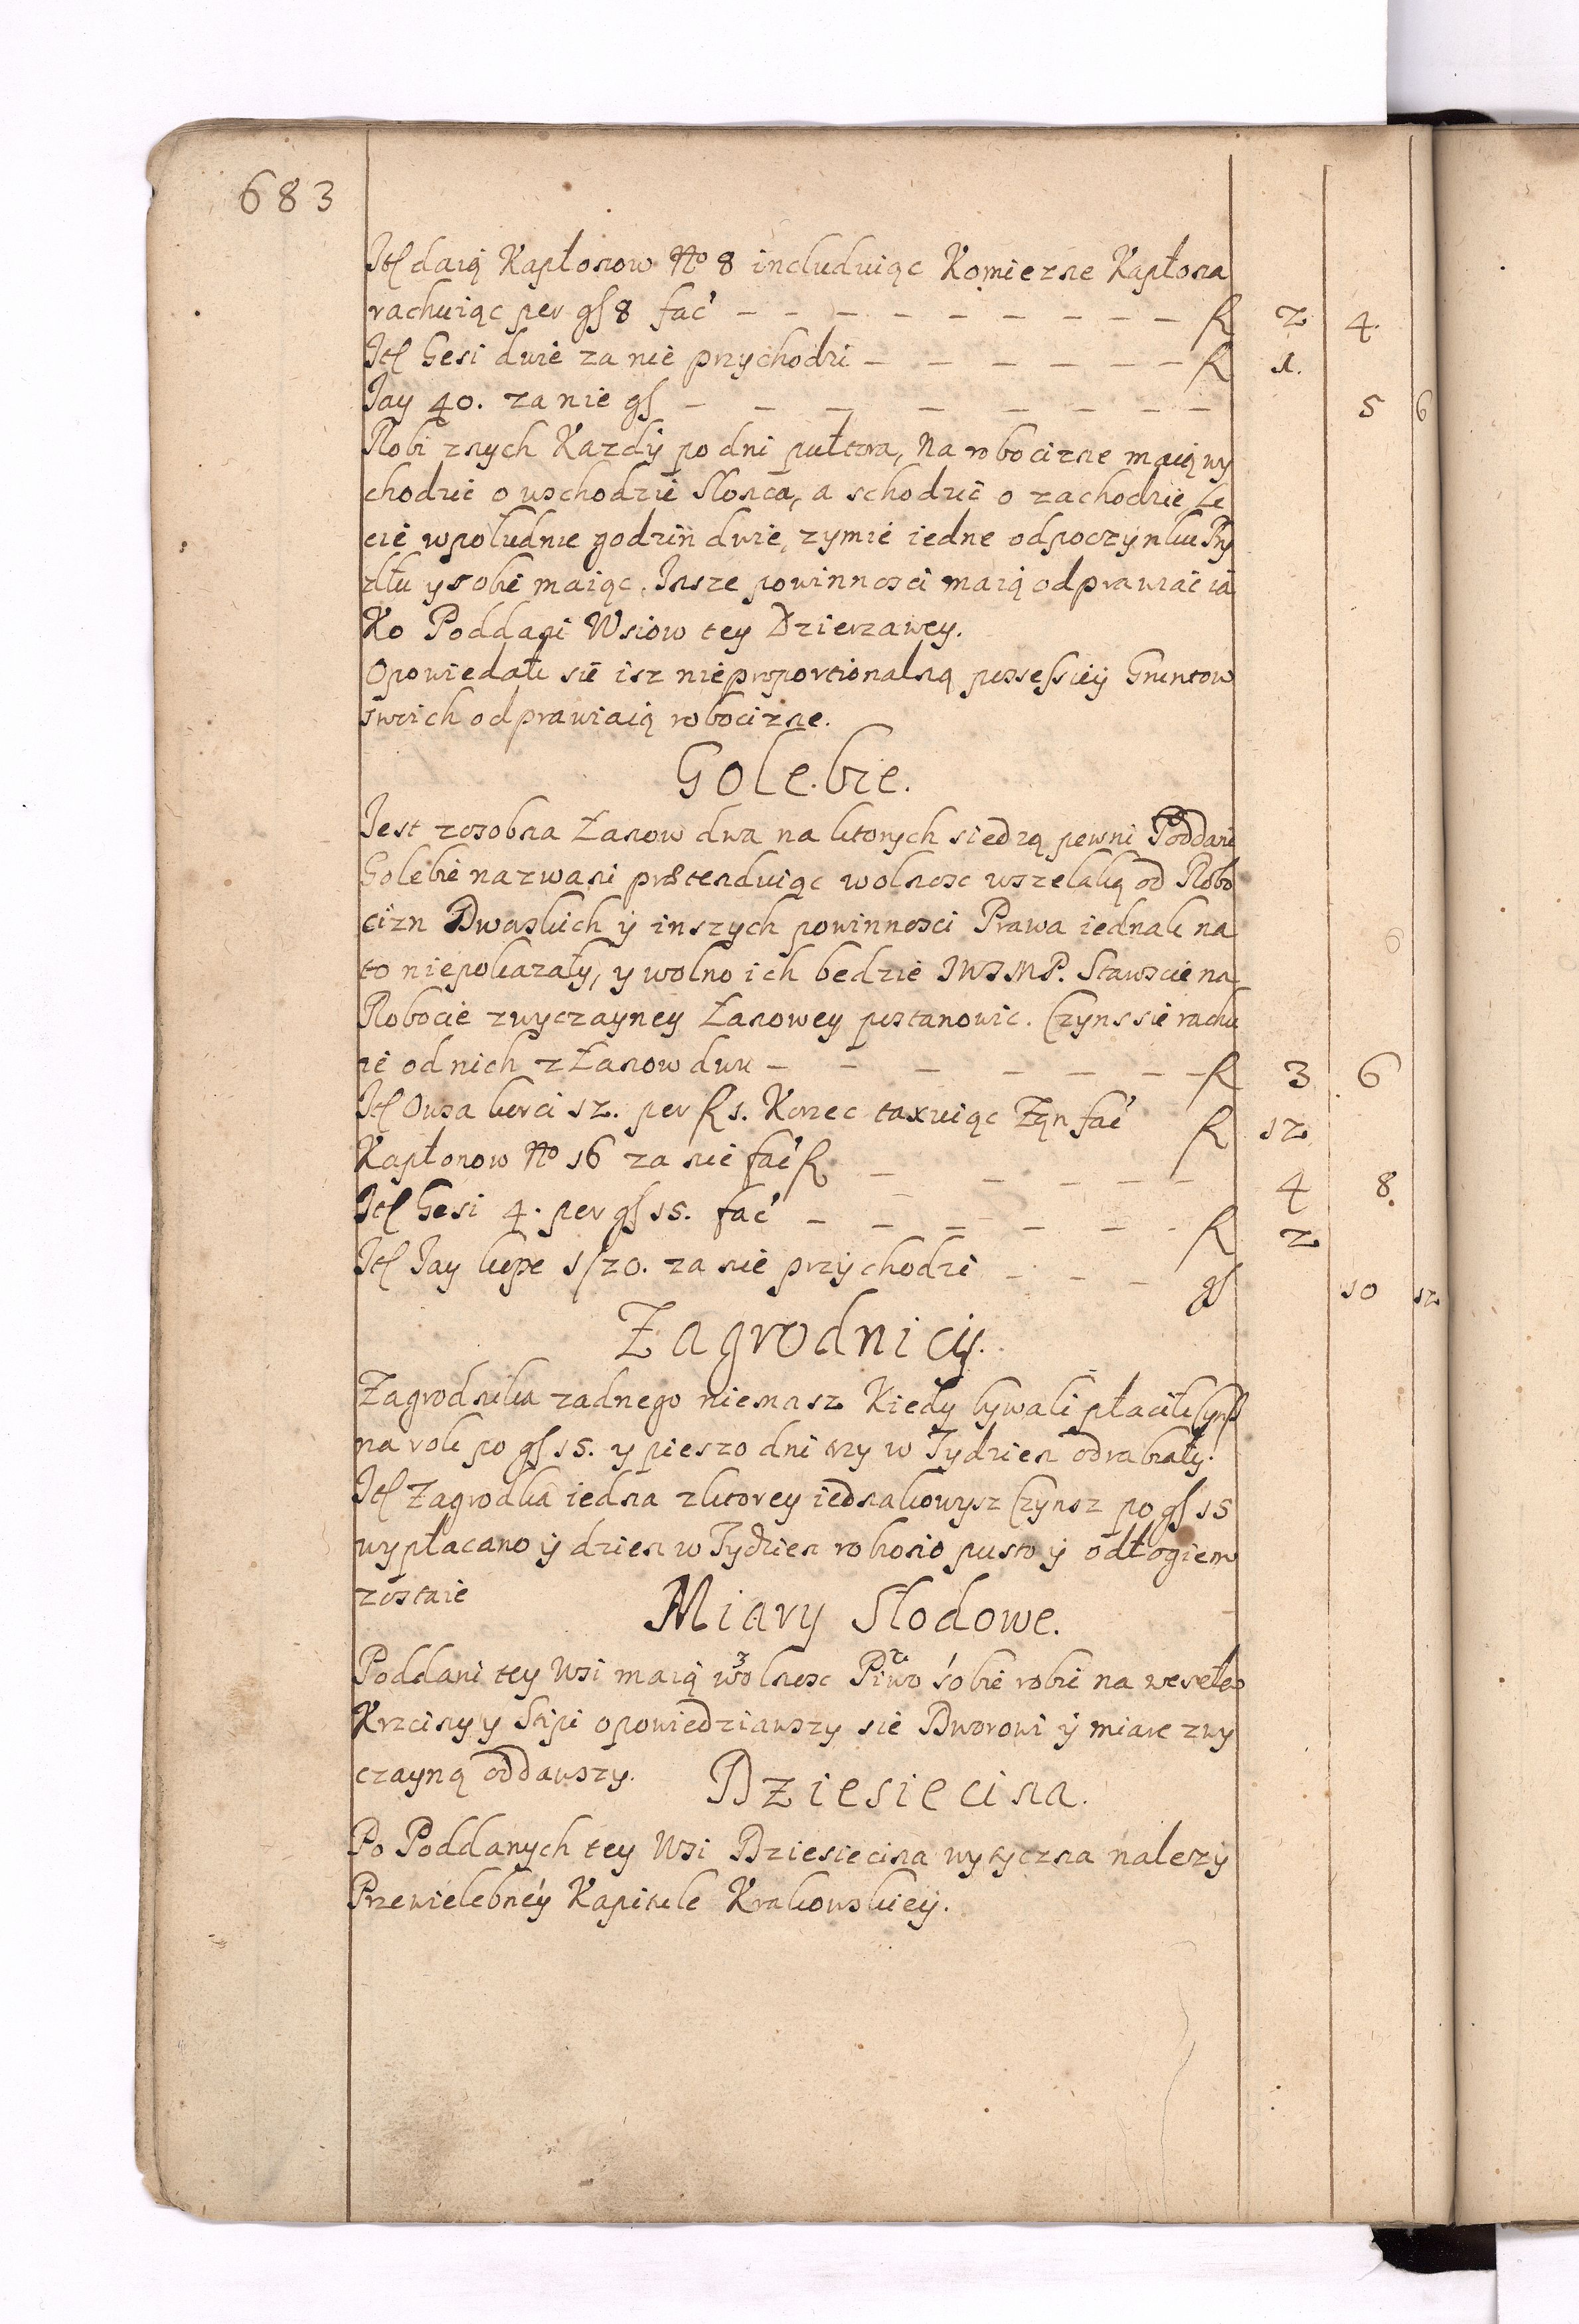 683
Itl daią Kapłonow No 8 includuiąc Komierne Kapłona
rachuiąc per gl 8 fac' fl 2 4.
Itl Gesi dwie za nie przychodzi fl 1.
Jay 40. za nie gl 5 6
Robi znych Kazdy po dni pułtora, Na robocizne maią wy
chodzic o wschodzie Słonca, a schodzic o zachodzie Le
cie wpoludnie godzin dwie, zymie iedne odpoczynku By
dłu y sobie maiąc. Insze powinnosci maią odprawiac ia
Ko Poddani Wsiow tey Dzierzawey.
Opowiedali sie isz nieproportionalną possessiey Gruntow
swoich odprawiaią robocizne.
Golebie.
Jest zosobna Łanow dwa na ktorych siedzą pewni Poddani
Golebie nazwani prætenduiąc wolnosc wszelaką od Robo
cizn Dworskich ÿ inszych powinnosci Prawa iednak na
to niepokazały, y wolno ich bedzie JWJMP. Staroscie na
Robocie zwyczayney Łanowey postanowic. Czyns sie rachu
ie od nich z Łanow dwu fl 3 6
Itl Owsa korci 12. per fl 1. Korzec taxuiąc Ząn fac' fl 12
Kapłonow No 16 za nie fac' fl 4 8.
Itl Gesi 4. per gl 15. fac' fl 2
Itl Jay kope 1/20. za nie przychodzi gl 10 12
Zagrodnicy.
Zagrodnika zadnego niemasz Kiedy bywali płacili Czynsz
na rok po gl 15. y pieszo dni trzy w Tydzien odrabiały.
Itl Zagrodka iedna zktorey iednakowysz Czynsz po gl 15
wypłacano ÿ dzien w Tydzien robiono pusto ÿ odłogiem
zostaie
Miary Słodowe.
Poddani tey Wsi maią wolnosc Piwo sobie robic na wesele
Krzciny y Stipi opowiedziawszy sie Dworowi ÿ miare zwy
czayną oddawszy.
Dziesiecina.
Po Poddanych tey Wsi Dziesiecina wytyczna nalezy
Przewielebney Kapitule Krakowskiey.